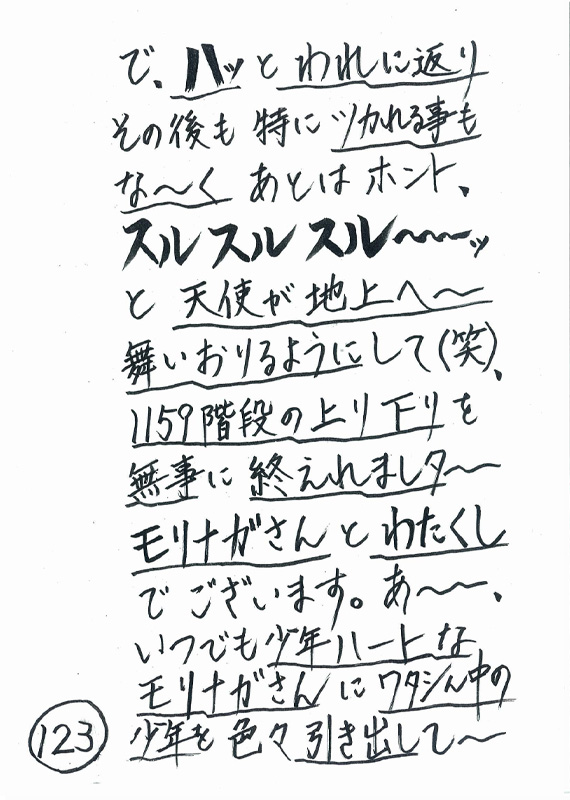 で、ハッと われに返り
その後も 特に ツかれる事も
な〜く あとは ホント、
スル スル スル〜〜〜ッ
と 天使が 地上へ〜
舞いおりるようにして(笑)、
1159階段の上り下りを
無事に 終えれましタ〜
モリナガさん と わたくし
で ございます。あ〜〜、
いつでも少年ハートな
モリナガさん に ワタシん中の
少年を 色々 引き出して〜
123